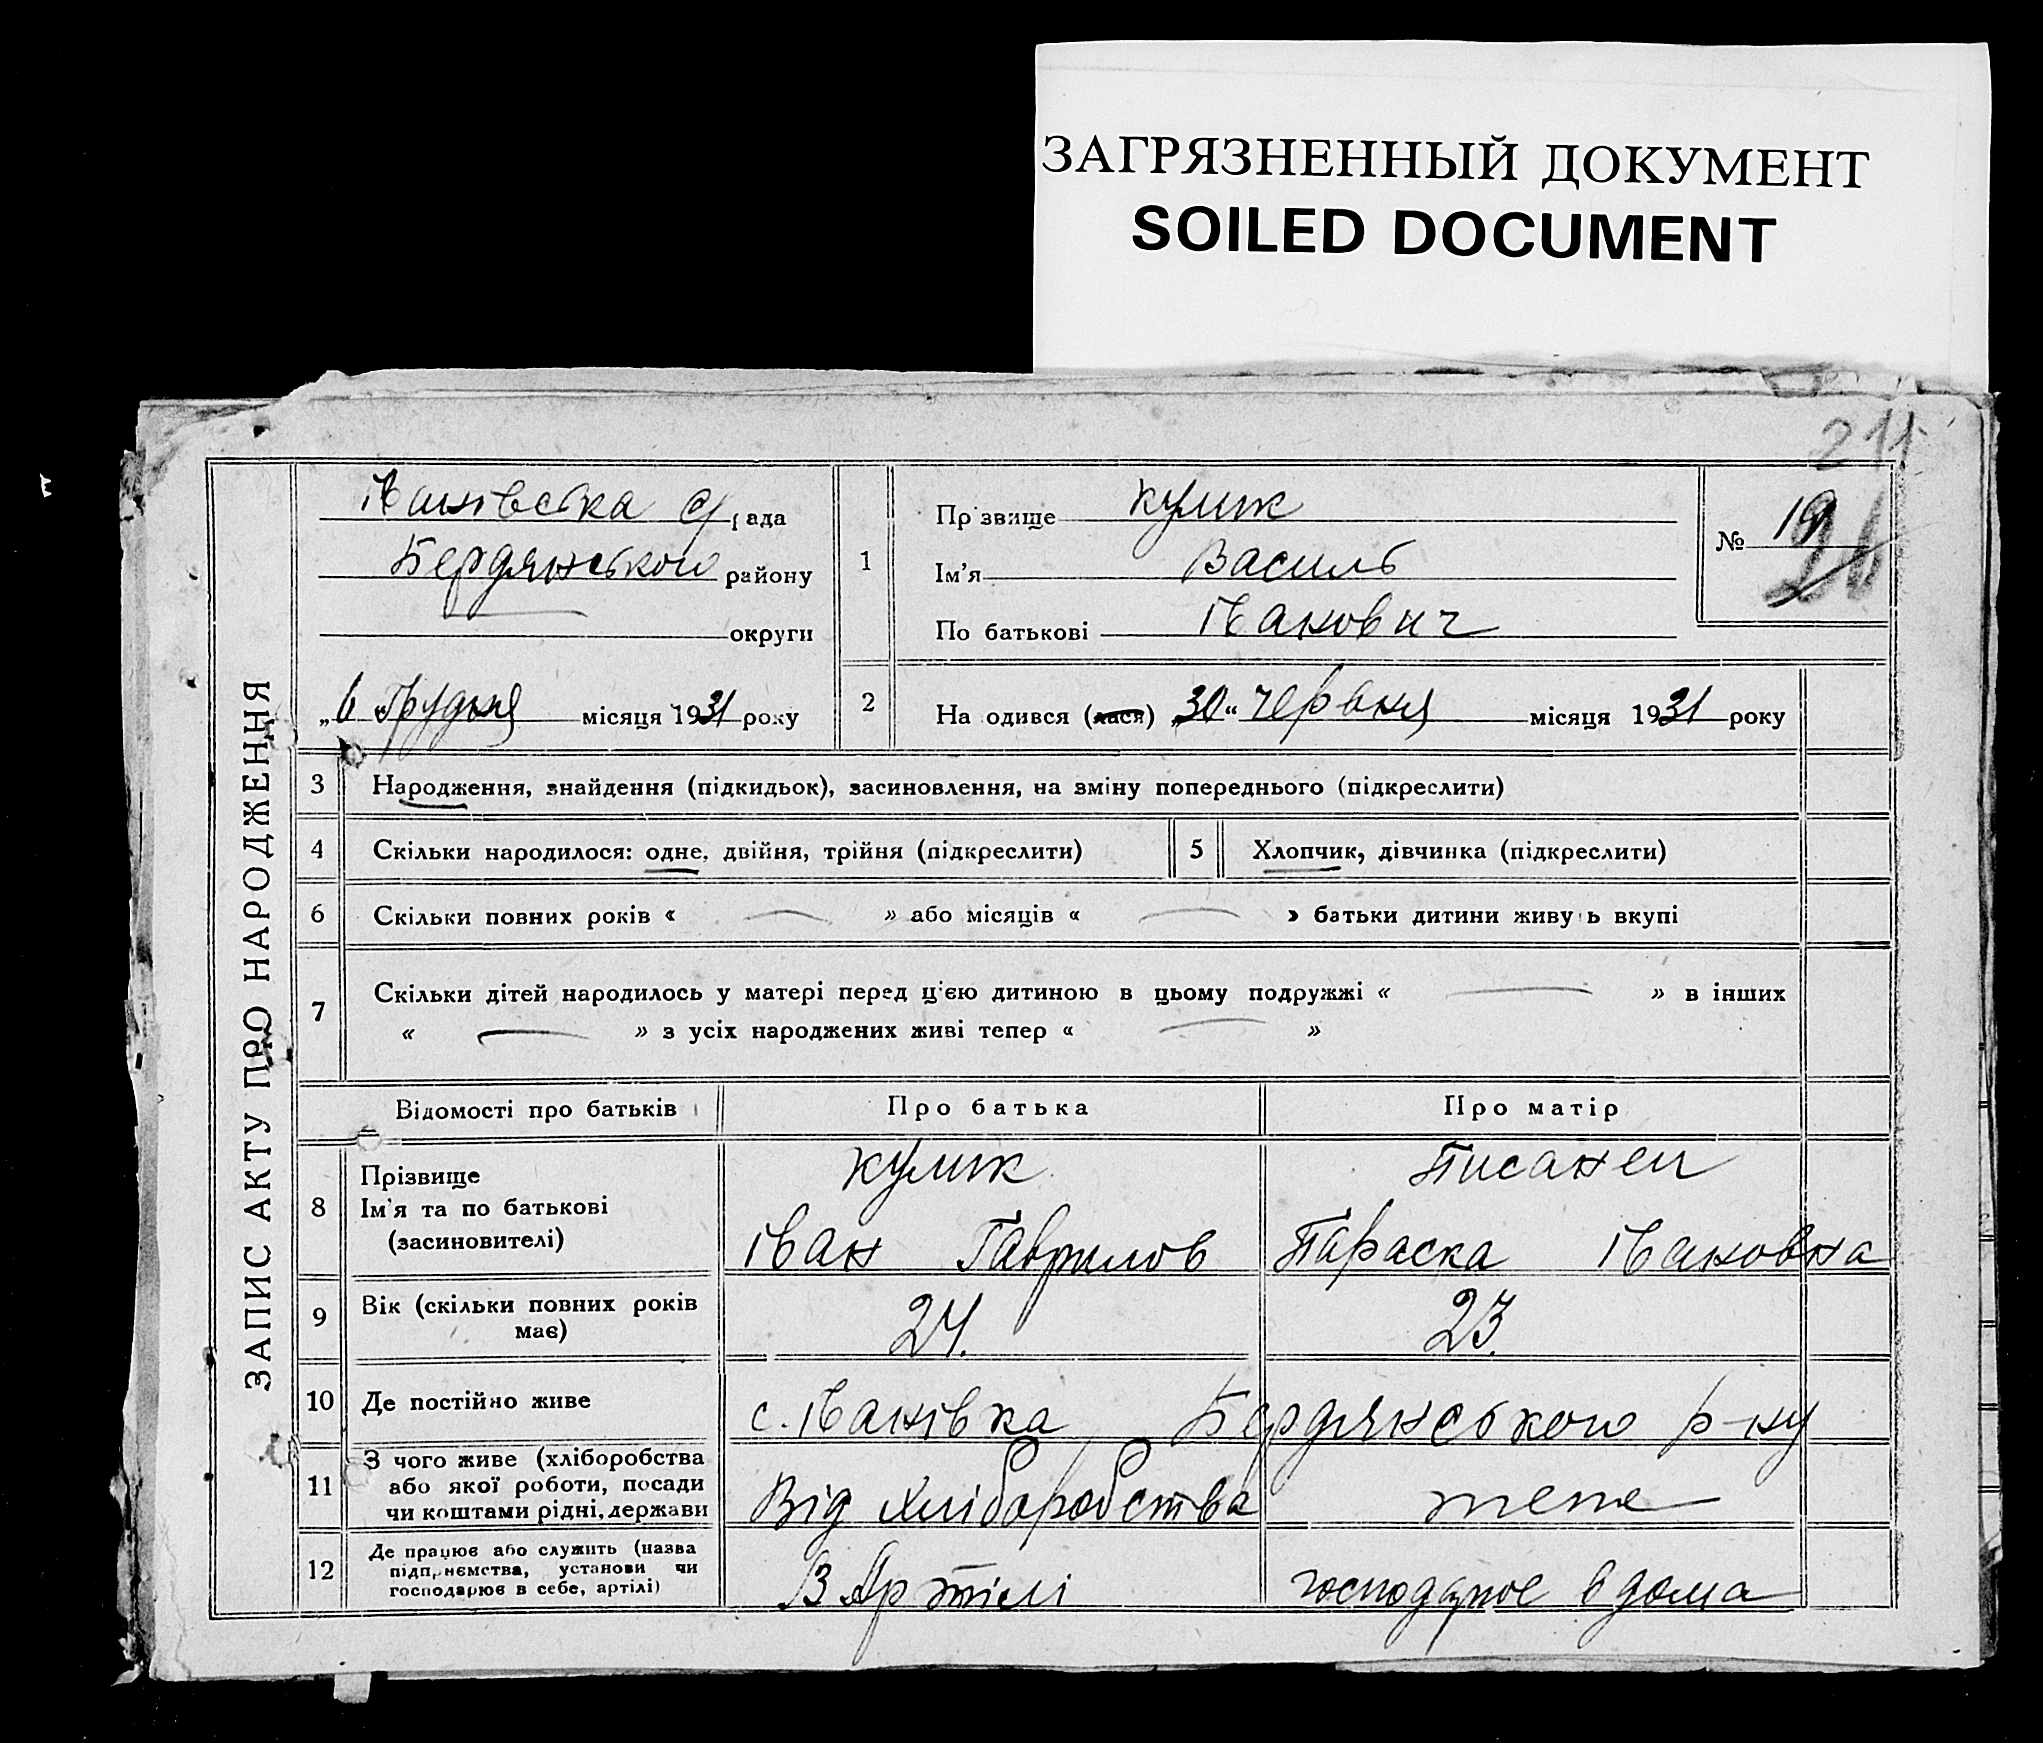 ЗАГРЯЗНЕННЫЙ ДОКУМЕНТ
SOILED DOCUMENT
211
ЗАПИС АКТУ ПРО НАРОДЖЕННЯ
Іванівська с/рада
Бердянського району
округи
„6 Грудня місяця 1931 року
1
Прізвище Кулик
Ім'я Василь
По батькові Іванович
№ 19
2 На одився (лася) „30“ червня місяця 1931 року
3 Народження, знайдення (підкидьок), засиновлення, на зміну попереднього (підкреслити)
4 Скільки народилося: одне, двійня, трійня (підкреслити) 5 Хлопчик, дівчинка (підкреслити)
6 Скільки повних років « — » або місяців « — » батьки дитини живу ь вкупі
7 Скільки дітей народилось у матері перед ц'єю дитиною в цьому подружжі « — » в інших
« — » з усіх народжених живі тепер « — »
Відомості про батьків Про батька Про матір
8 Прізвище
Ім'я та по батькові
(засиновителі)
Кулик
Іван Гаврилов
Писанец
Параска Івановна
9 Вік (скільки повних років
має)
24. 23.
10 Де постійно живе с. Іванівка Бердянського р-ну
11 З чого живе (хліборобства
або якої роботи, посади
чи коштами рідні, держави
Від хліборобства теж
12 Де працює або служить (назва
підприємства, установи чи
господарює в себе, артілі)
В Артілі господарює вдома